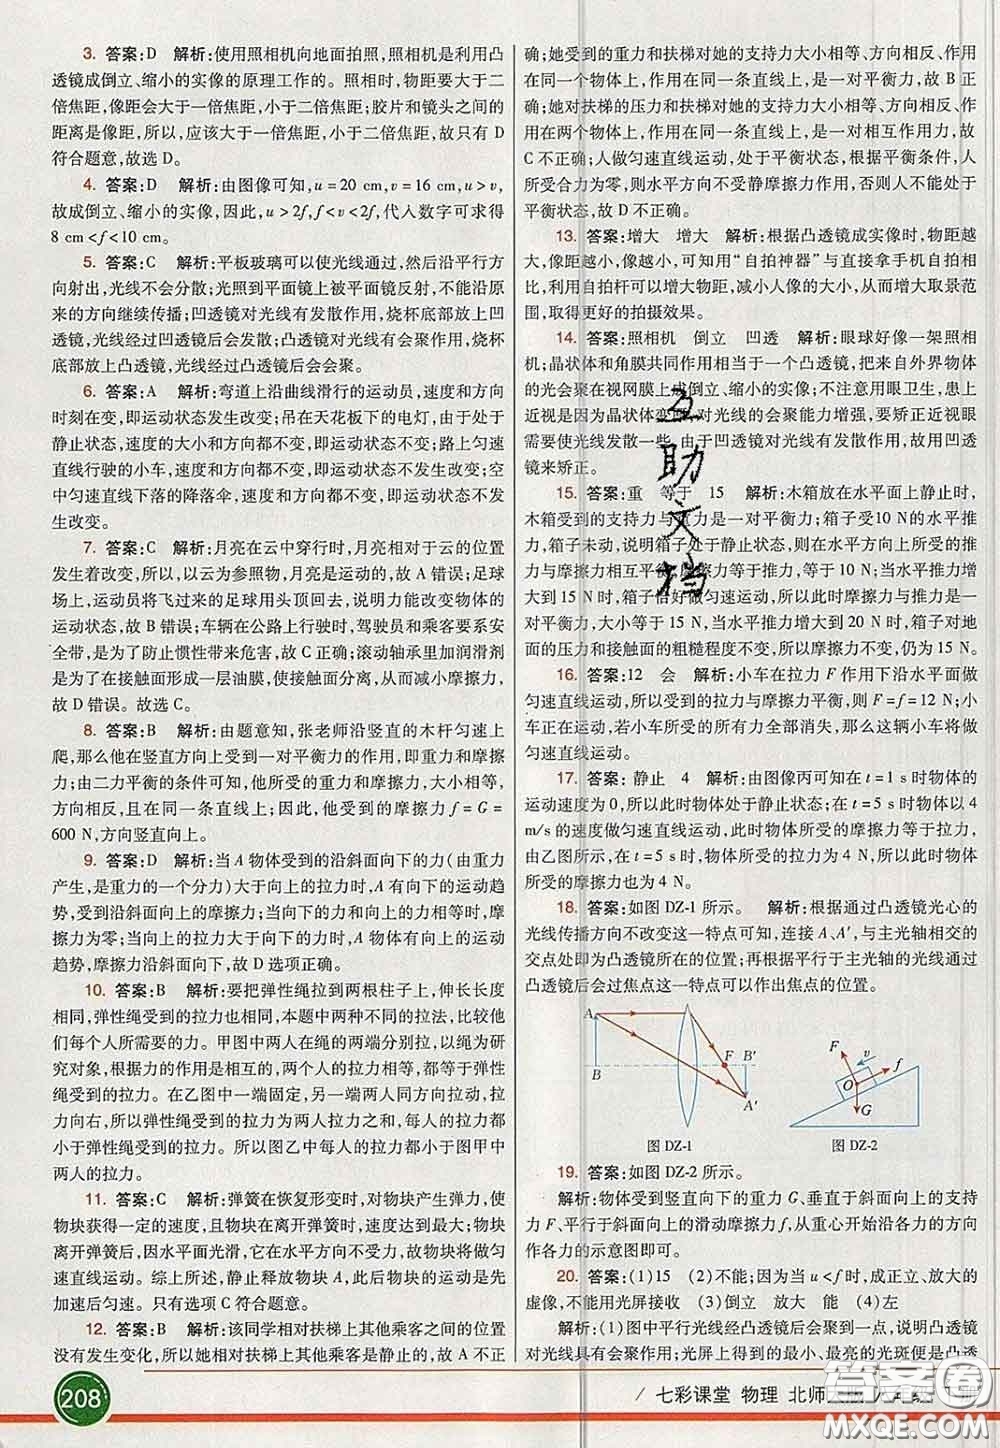 3. 答案:D 解析:使用照相机向地面拍照,照相机是利用凸
透镜成倒立、缩小的实像的原理工作的。照相时,物距要大于二
倍焦距,像距会大于一倍焦距、小于二倍焦距;胶片和镜头之间的
距离是像距,所以,应该大于一倍焦距,小于二倍焦距,故只有 D
符合题意,故选 D。
4. 答案:D 解析:由图像可知,u = 20 cm,v = 16 cm,u > v,
故成倒立、缩小的实像,因此,u > 2f,f < v < 2f,代入数字可求得
8 cm < f < 10 cm。
5. 答案:C 解析:平板玻璃可以使光线通过,然后沿平行方
向射出,光线不会分散;光照到平面镜上将被平面镜反射,不能沿原
来的方向继续传播;凹透镜对光线有发散作用,烧杯底部放凹透镜,
光线经过凹透镜后会发散;凸透镜对光线有会聚作用,烧杯
底部放上凸透镜,光线经过凸透镜后会会聚。
6. 答案:A 解析:弯道上沿曲线滑行的运动员,速度和方向
时刻在变,即运动状态发生改变;吊在天花板下的电灯,由于处于
静止状态,速度的大小和方向都不变,即运动状态不变;路上匀速
直线行驶的小车,速度和方向都不变,即运动状态没发生改变;空
中匀速直线下落的降落伞,速度和方向都不变,即运动状态不发
生改变。
7. 答案:C 解析:月亮在云中穿行时,月亮相对于云的位置
发生着改变,所以,以云为参照物,月亮是运动的,故 A 错误;足球
场上,运动员将飞过来的足球用头顶回去,说明力能改变物体的
运动状态,故 B 错误;车辆在公路上行驶时,驾驶员和乘客要系安
全带,是为了防止惯性带来危害,故 C 正确;滚动轴承里加润滑剂
是为了在接触面形成一层油膜,使接触面分离,从而减小摩擦,故
D 错误。故选 C。
8. 答案:B 解析:由题意知,张老师沿竖直的木杆匀速上
爬,那么他在竖直方向上受到一对平衡力的作用,即重力和摩擦
力;由二力平衡的条件可知,他所受的重力和摩擦力,大小相等,方
向相反,且在同一条直线上;因此,他受到的摩擦力 f = G =
600 N,方向竖直向上。
9. 答案:D 解析:当 A 物体受到的沿斜面向下的力(由重力
产生,是重力的一个分力)大于向上的拉力时,A 有向下的运动趋
势,受到沿斜面向上的摩擦力;当向下的力与向上的拉力相等时,摩擦
力为零;当向上的拉力大于向下的力时,A 物体有向上的运动
趋势,摩擦力沿斜面向下,故 D 选项正确。
10. 答案:B 解析:要把弹性绳拉到两根柱子上,伸长长度
相同,弹性绳受到的力也相同,本题中两种不同的拉法,比较他
们每个人所需要的力。甲图中两人在两端分别拉,以绳为研
究对象,根据力的作用是相互的,两个人的拉力都与弹性绳受到
的力相等。在乙图中一端固定,另一端两人同方向拉动,拉
力向右,所以弹性绳受到的力大小等于两人拉力之和,每人的拉力都小
于弹性绳受到的拉力。所以图乙中每人的拉力都小于图甲中
两人的拉力。
11. 答案:C 解析:弹簧在恢复形变时,对物块产生弹力,使
物块获得一定的速度,且物块在离开弹簧前速度越来越大;物块
离开弹簧后,因水平面光滑,它在水平方向不受力,故物块将做匀
速直线运动。综上所述,静止释放物块 A,此后物块的运动是先
加速后匀速。只有选项 C 符合题意。
12. 答案:B 解析:该同学相对扶梯上其他乘客之间的位置
没有发生变化,所以她相对扶梯上其他乘客是静止的,故 A 不正
确;她受到的重力和扶梯对她的支持力大小相等、方向相反、作用
在同一个物体上,作用在同一条直线上,是一对平衡力,故 B 正
确;她对扶梯的压力和扶梯对她的支持力大小相等、方向相反、作用
在两个物体上,作用在同一条直线上,是一对相互作用力,故
C 不正确;人做匀速直线运动,处于平衡状态,根据平衡条件,人
所受合力为零,则水平方向不受静摩擦力作用,否则人不能处于
平衡状态,故 D 不正确。
13. 答案:增大 增大 解析:根据凸透镜成实像时,物距越
大,像距越小,像越小,可知用“自拍神器”与直接拿手机自拍相
比,利用自拍杆可以增大物距,减小人像的大小,从而增大取景范
围,取得更好的拍摄效果。
14. 答案:照相机 倒立 凹透 解析:眼球好像一架照相
机;晶状体和角膜共同作用相当于一个凸透镜,把来自外界物体
的光会聚在视网膜上成倒立、缩小的实像;不注意用眼卫生,患上
近视是因为晶状体变厚,对光线的会聚能力增强,要矫正近视眼
需要使光线发散一些,由于凹透镜对光线有发散作用,故用凹透
镜来矫正。
15. 答案:重 等于 15 解析:木箱放在水平面上静止时,
木箱受到的支持力与重力是一对平衡力;箱子受10 N的水平推
力,箱子未动,说明箱子处于静止状态,则在水平方向上,所受推
力与摩擦力相互平衡,摩擦力等于推力,等于 10 N;水平推力增
大到 15 N 时,箱子恰好做匀速运动,所以此时摩擦力与推力是一对平衡
力,大小等于 15 N,当水平推力增大到 20 N 时,箱子对地
面的压力和接触面的粗糙程度不变,所以摩擦力不变,仍为 15 N。
16. 答案:12 会 解析:小车在拉力 F 作用下沿水平面做
匀速直线运动,所以受到的拉力与摩擦力平衡,则 F = f = 12 N;小
车正在运动,若小车所受的所有力全部消失,那么这辆小车将做
匀速直线运动。
17. 答案:静止 4 解析:由图像丙可知在 t = 1 s时物体的
运动速度为 0,所以此时物体处于静止状态;在 t = 5 s时物体以 4
m/s 的速度做匀速直线运动,此时物体所受的摩擦力等于拉力,
由乙图所示,在 t = 5 s 时,物体所受的拉力为 4 N,所以此时物体
所受的摩擦力也为 4 N。
18. 答案:如图 DZ-1 所示。 解析:根据通过凸透镜光心的
光线传播方向不改变这一特点可知,连接 A、A′,与主光轴相交的
交点处即为凸透镜所在的位置;再根据平行于主光轴的光线通过
凸透镜后会过焦点这一特点可以作出焦点的位置。
A F B′ B A′
F v f O G
图 DZ-1 图 DZ-2
19. 答案:如图 DZ-2 所示。
解析:物体受到竖直向下的重力 G、垂直于斜面向上的支持
力 F、平行于斜面向上的滑动摩擦力 f,从重心开始沿各力的方向
作各力的示意图即可。
20. 答案:(1)15 (2)不能;因为当 u < f 时,成正立、放大的
虚像,不能用光屏接收 (3)倒立 放大 能 (4)左
解析:(1)图中平行光线经凸透镜后会聚到一点,说明凸透镜
对光线具有会聚作用;光屏上得到的最小、最亮的光斑便是凸透
互助文档
208
/ 七彩课堂 物理 北师
答案圈
MXQE.COM